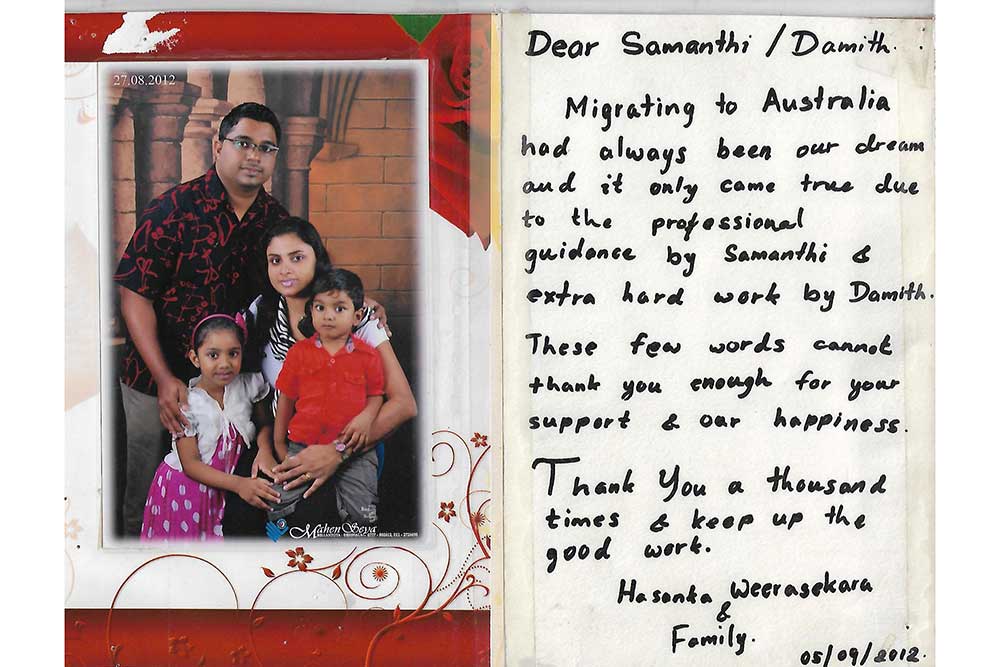 27.08.2012
Mahen Seya
Dear Samanthi / Damith.
Migrating to Australia
had always been our dream
and it only came true due
to the professional
guidance by Samanthi &
extra hard work by Damith.
These few words cannot
thank you enough for your
support & our happiness.
Thank You a thousand
times & keep up the
good work.
Hasanka Weerasekara
&
Family.
05/09/2012.